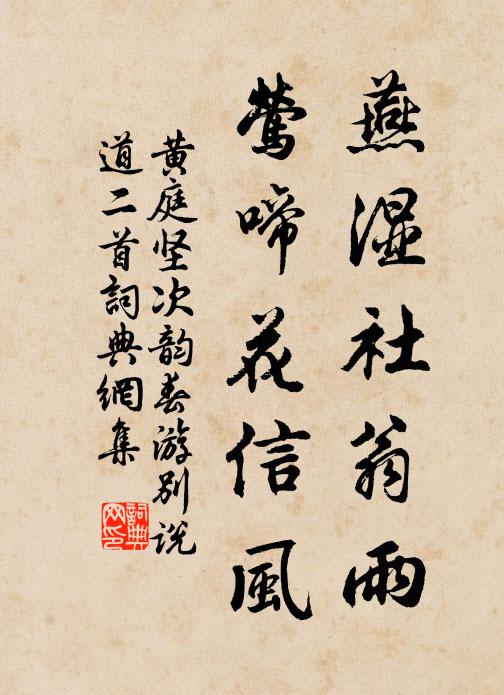 燕湿社翁雨
莺啼花信風
黄庭坚次韵春游别说
道二首詞典網集
詞典
网印